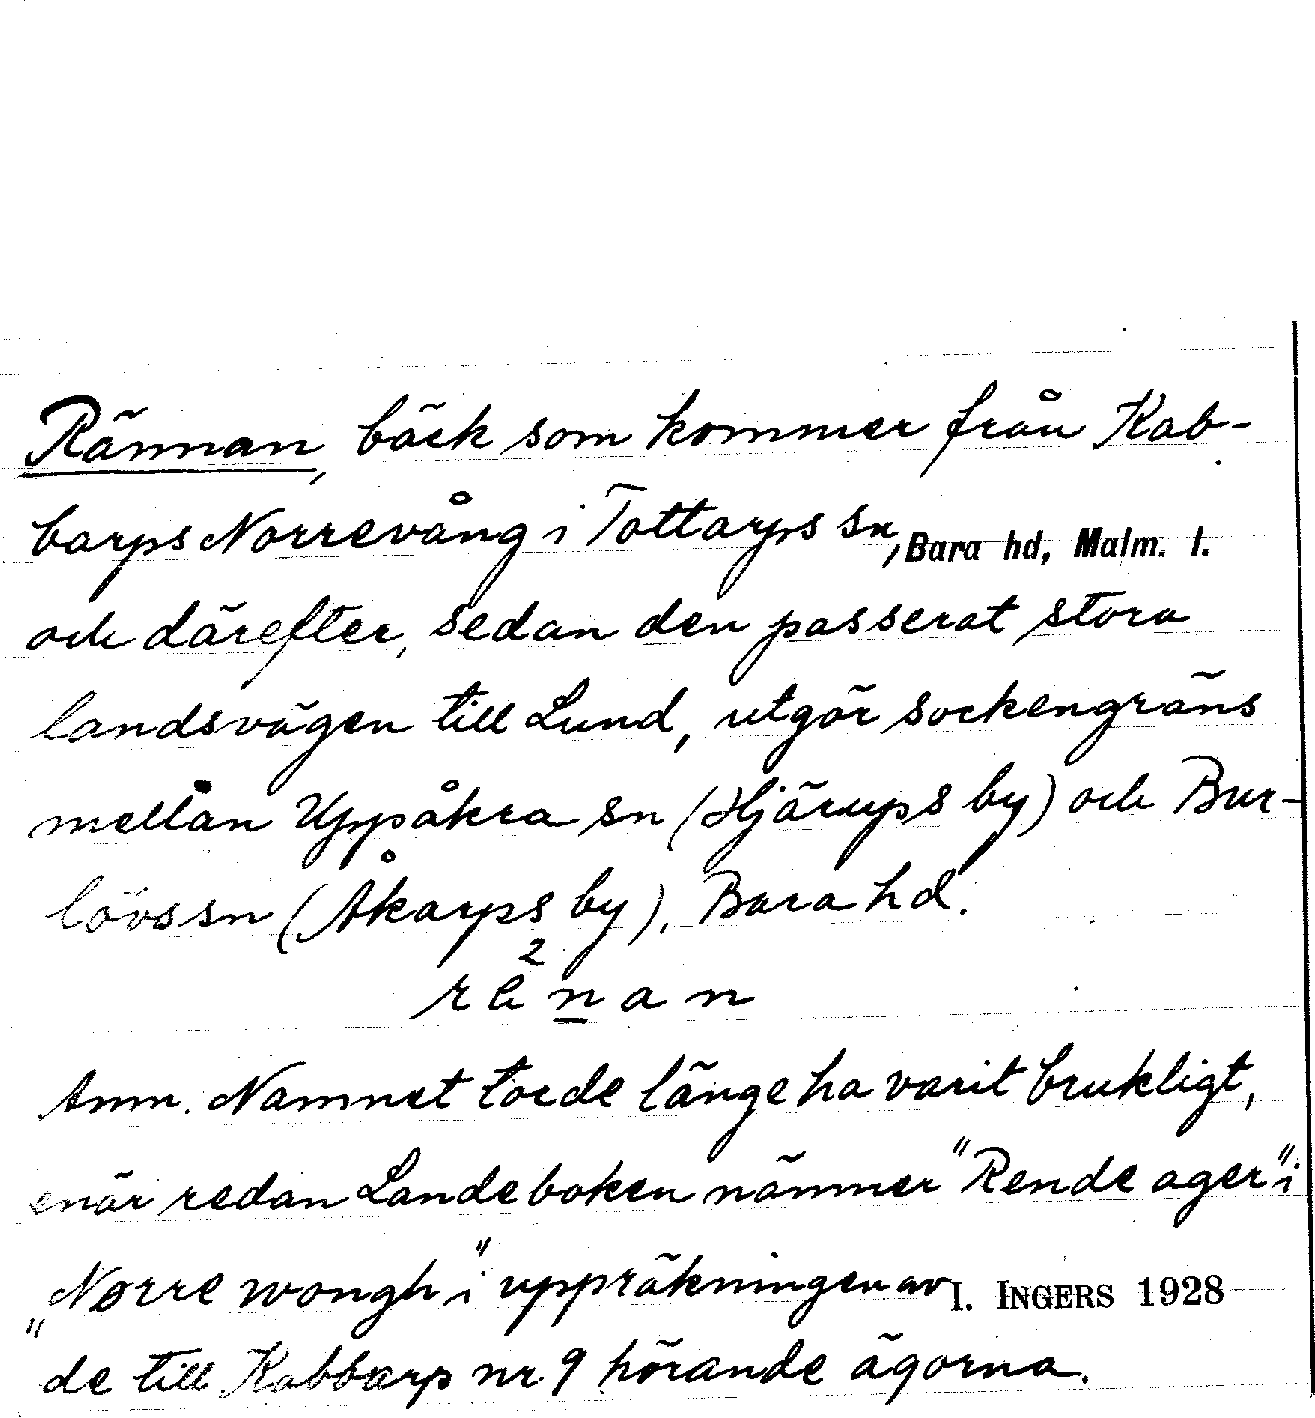 Rännan, bäck som kommer från Kab-
barps Norrevång i Tottarps sn, Bara hd, Malm. l.
och därefter, sedan den passerat stora
landsvägen till Lund, utgör sockengräns
mellan Uppåkra sn (Hjärups by) och Bur-
lövs sn (Åkarps by), Bara hd.
2
ränan
Anm. Namnet torde länge ha varit brukligt,
enär redan Landeboken nämner "Rende ager" i
"Nørre wongh" i uppräkningen av I. INGERS 1928
de till Kabbarp nr 9 hörande ägorna.